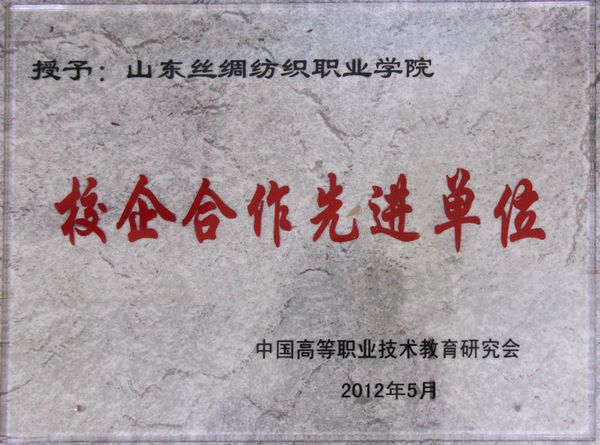 授予：山东丝绸纺织职业学院
校企合作先进单位
中国高等职业技术教育研究会
2012年5月